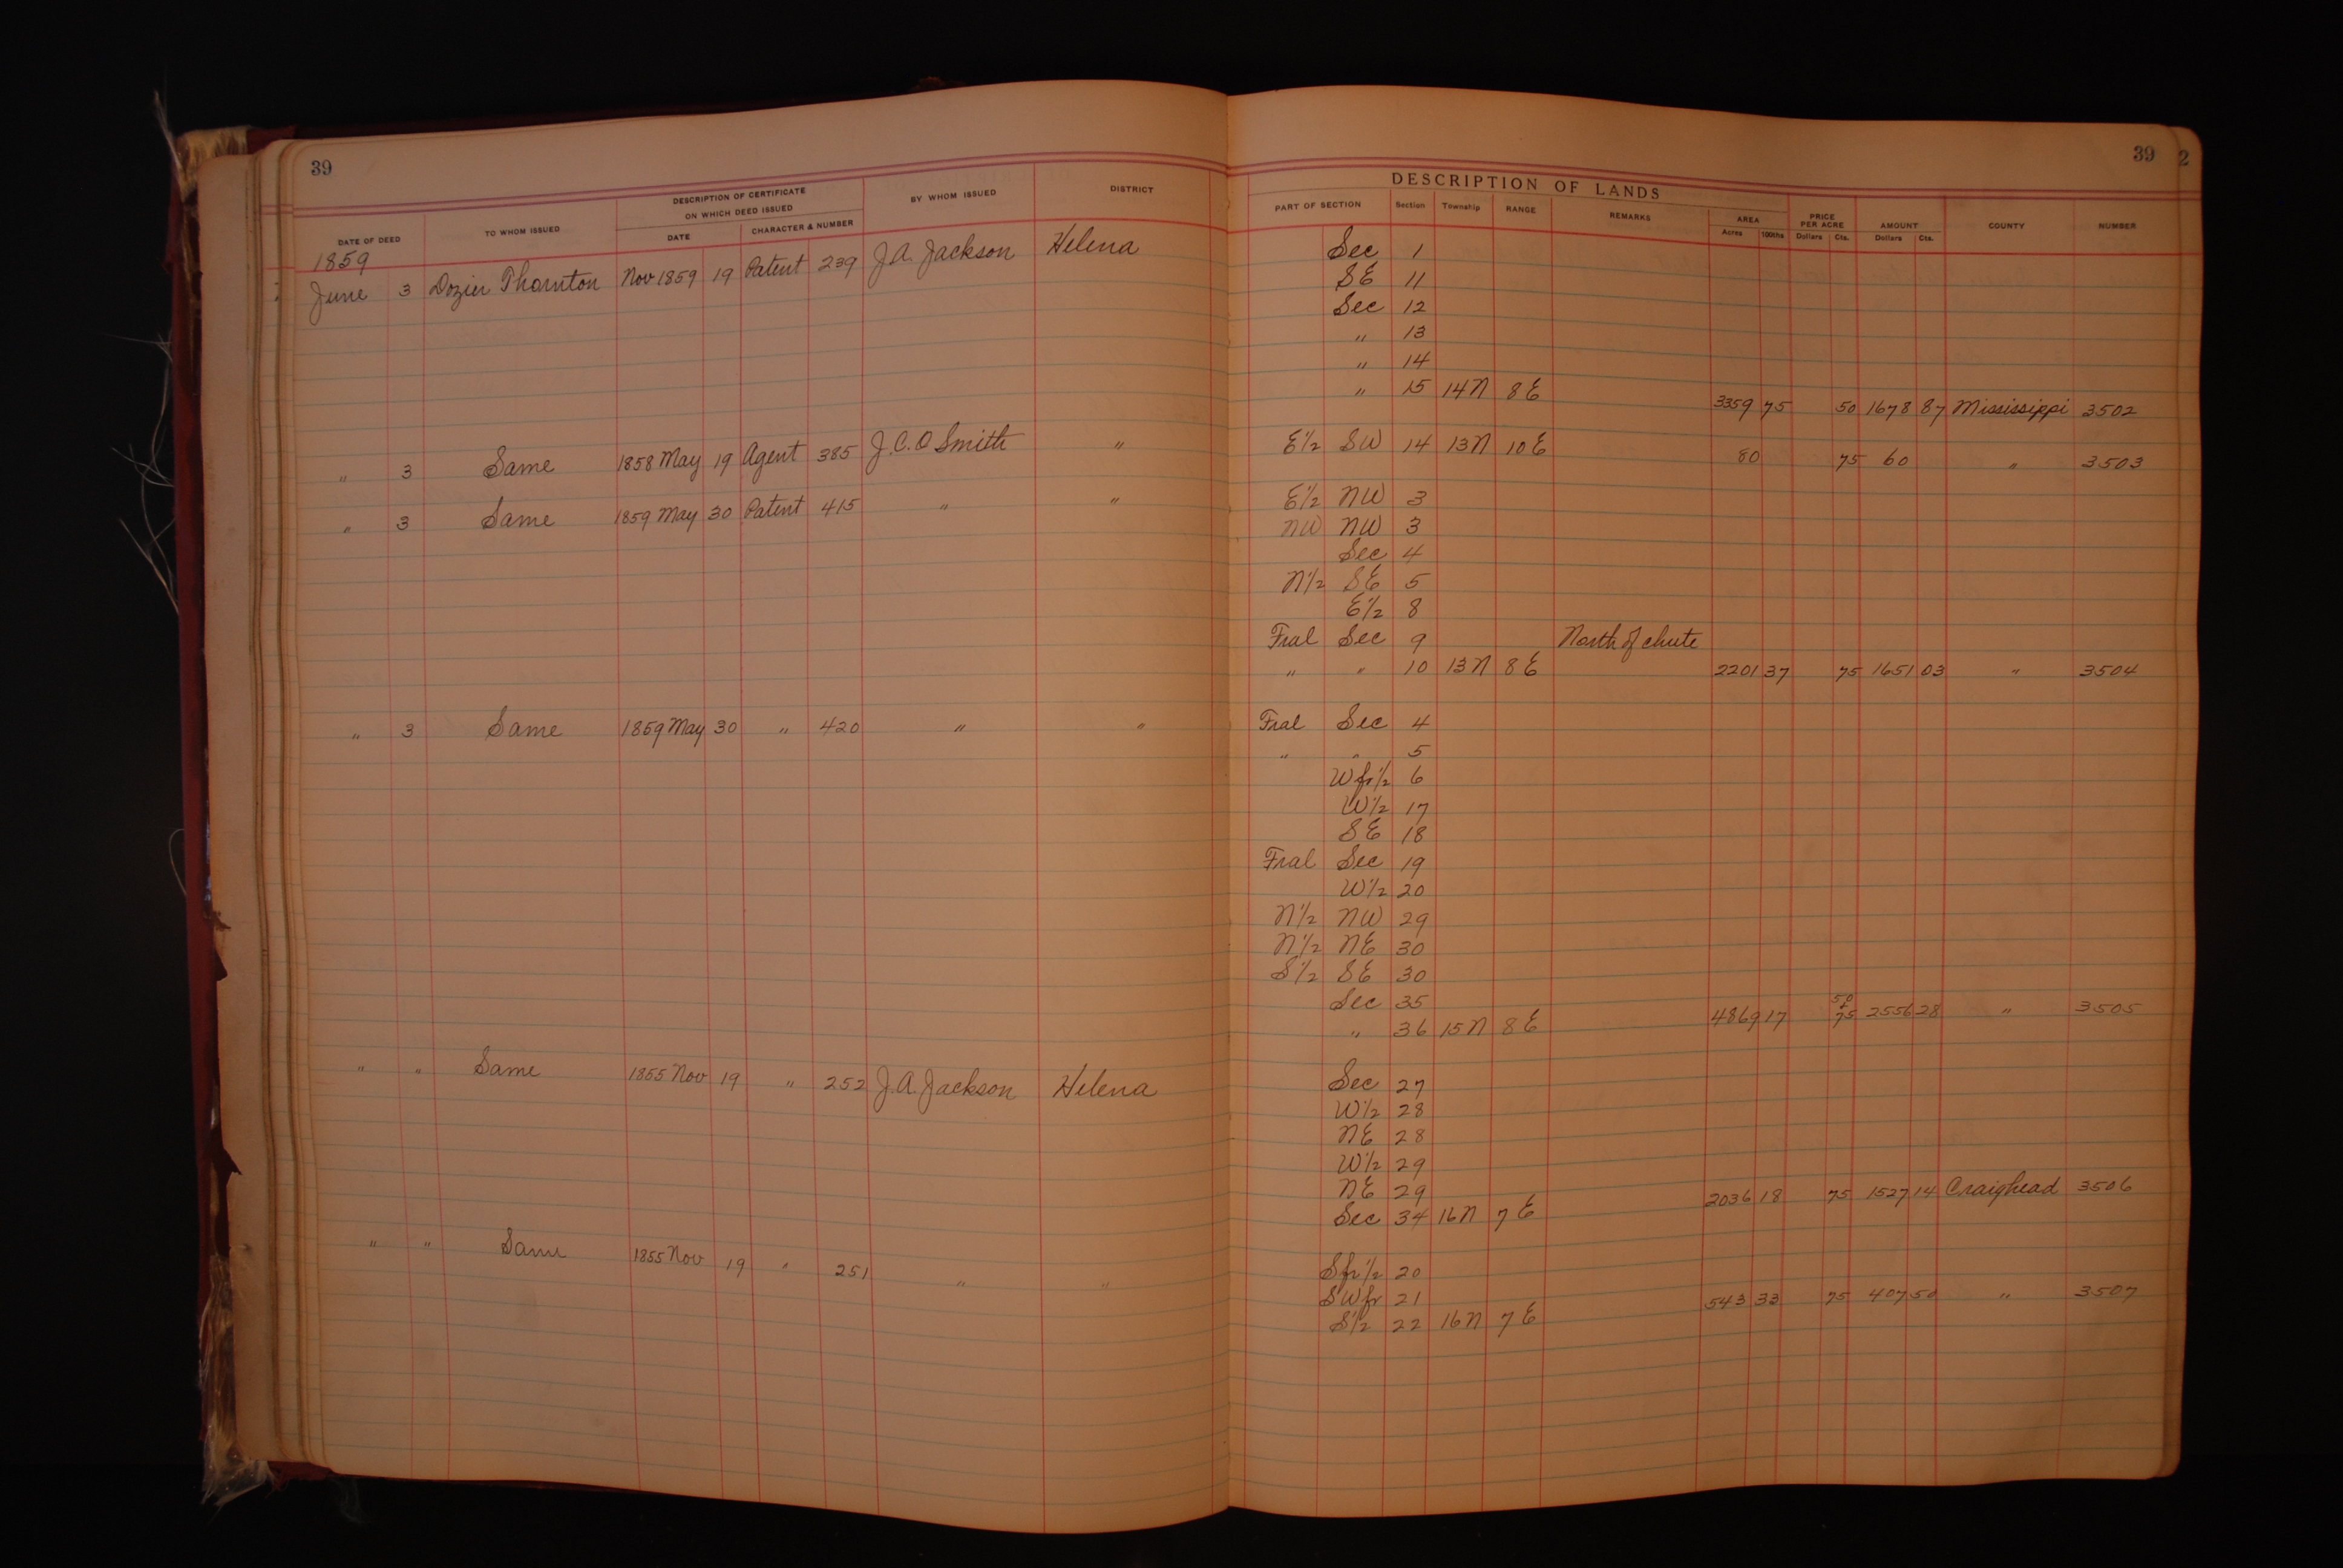 39
DESCRIPTION OF CERTIFICATE
ON WHICH DEED ISSUED
BY WHOM ISSUED
DISTRICT
DATE OF DEED
TO WHOM ISSUED
DATE
CHARACTER & NUMBER
1859
June 3 Dozier Thornton Nov 1859 19 Patent 239 J.A. Jackson Helena
" 3 Same 1858 May 19 Agent 385 J.C.O Smith "
" 3 Same 1859 May 30 Patent 415 " "
" 3 Same 1859 May 30 " 420 " "
" " Same 1855 Nov 19 " 252 J.A. Jackson Helena
" " Same 1855 Nov 19 " 251 " "
39 2
DESCRIPTION OF LANDS
PART OF SECTION Section Township RANGE REMARKS AREA PRICE PER ACRE AMOUNT COUNTY NUMBER
Acres 100ths Dollars Cts. Dollars Cts.
Sec 1
SE 11
Sec 12
" 13
" 14
" 15 14N 8E 3359 75 50 1678 87 Mississippi 3502
E½ SW 14 13N 10E 80 75 60 " 3503
E½ NW 3
NW NW 3
Sec 4
N½ SE 5
E½ 8
Fral Sec 9 North of chute
" " 10 13N 8E 2201 37 75 1651 03 " 3504
Fral Sec 4
" " 5
W fr ½ 6
W½ 17
SE 18
Fral Sec 19
W½ 20
N½ NW 29
N½ NE 30
S½ SE 30
Sec 35
" 36 15N 8E 4869 17 50 + 75 2556 28 " 3505
Sec 27
W½ 28
NE 28
W½ 29
NE 29
Sec 34 16N 7E 2036 18 75 1527 14 Craighead 3506
S fr ½ 20
SW fr 21
S½ 22 16N 7E 543 33 75 407 50 " 3507